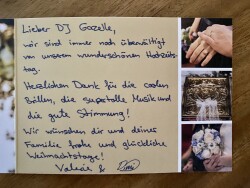 Lieber DJ Gazelle,
wir sind immer noch überwältigt
von unserem wunderschönen Hochzeits-
tag.
Herzlichen Dank für die coolen
Bällen, die supertolle Musik und
die gute Stimmung!
Wir wünschen dir und deiner
Familie frohe und glückliche
Weihnachtstage!
Valerie &